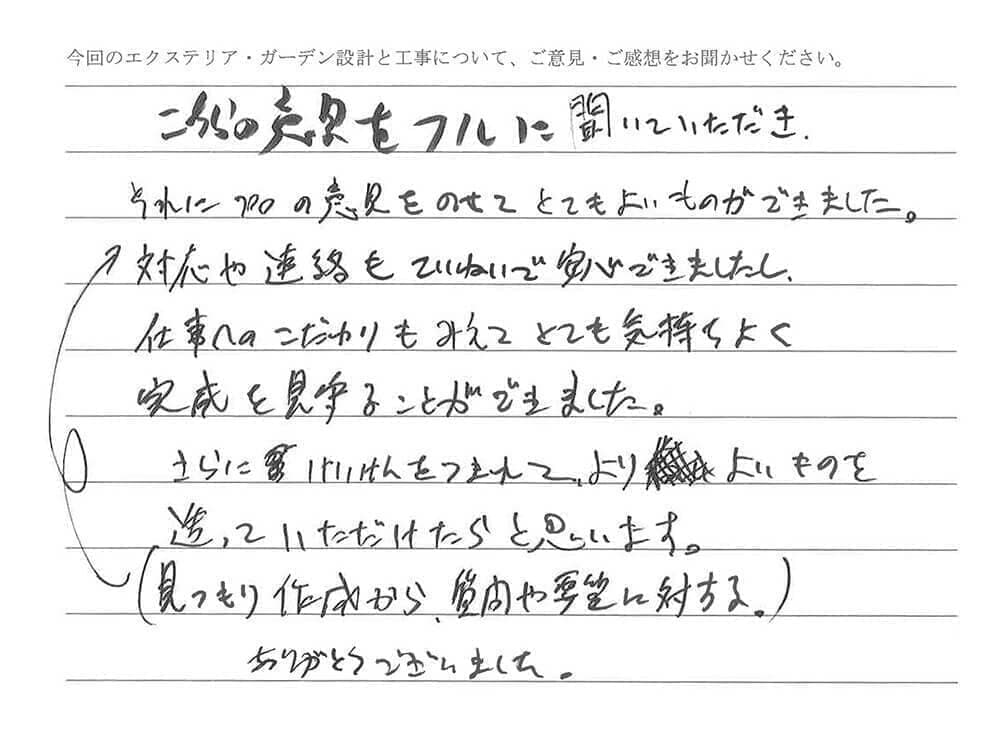 今回のエクステリア・ガーデン設計と工事について、ご意見・ご感想をお聞かせください。
こちらの意見をフルに聞いていただき、
それにプロの意見をのせてとてもよいものができました。
対応や連絡もていねいで安心できましたし、
仕事へのこだわりもみえてとても気持ちよく
完成を見守ることができました。
さらにけいけんをつまれて、よりよいものを
造っていただけたらと思います。
(見つもり作成から、質問や要望に対する。)
ありがとうございました。